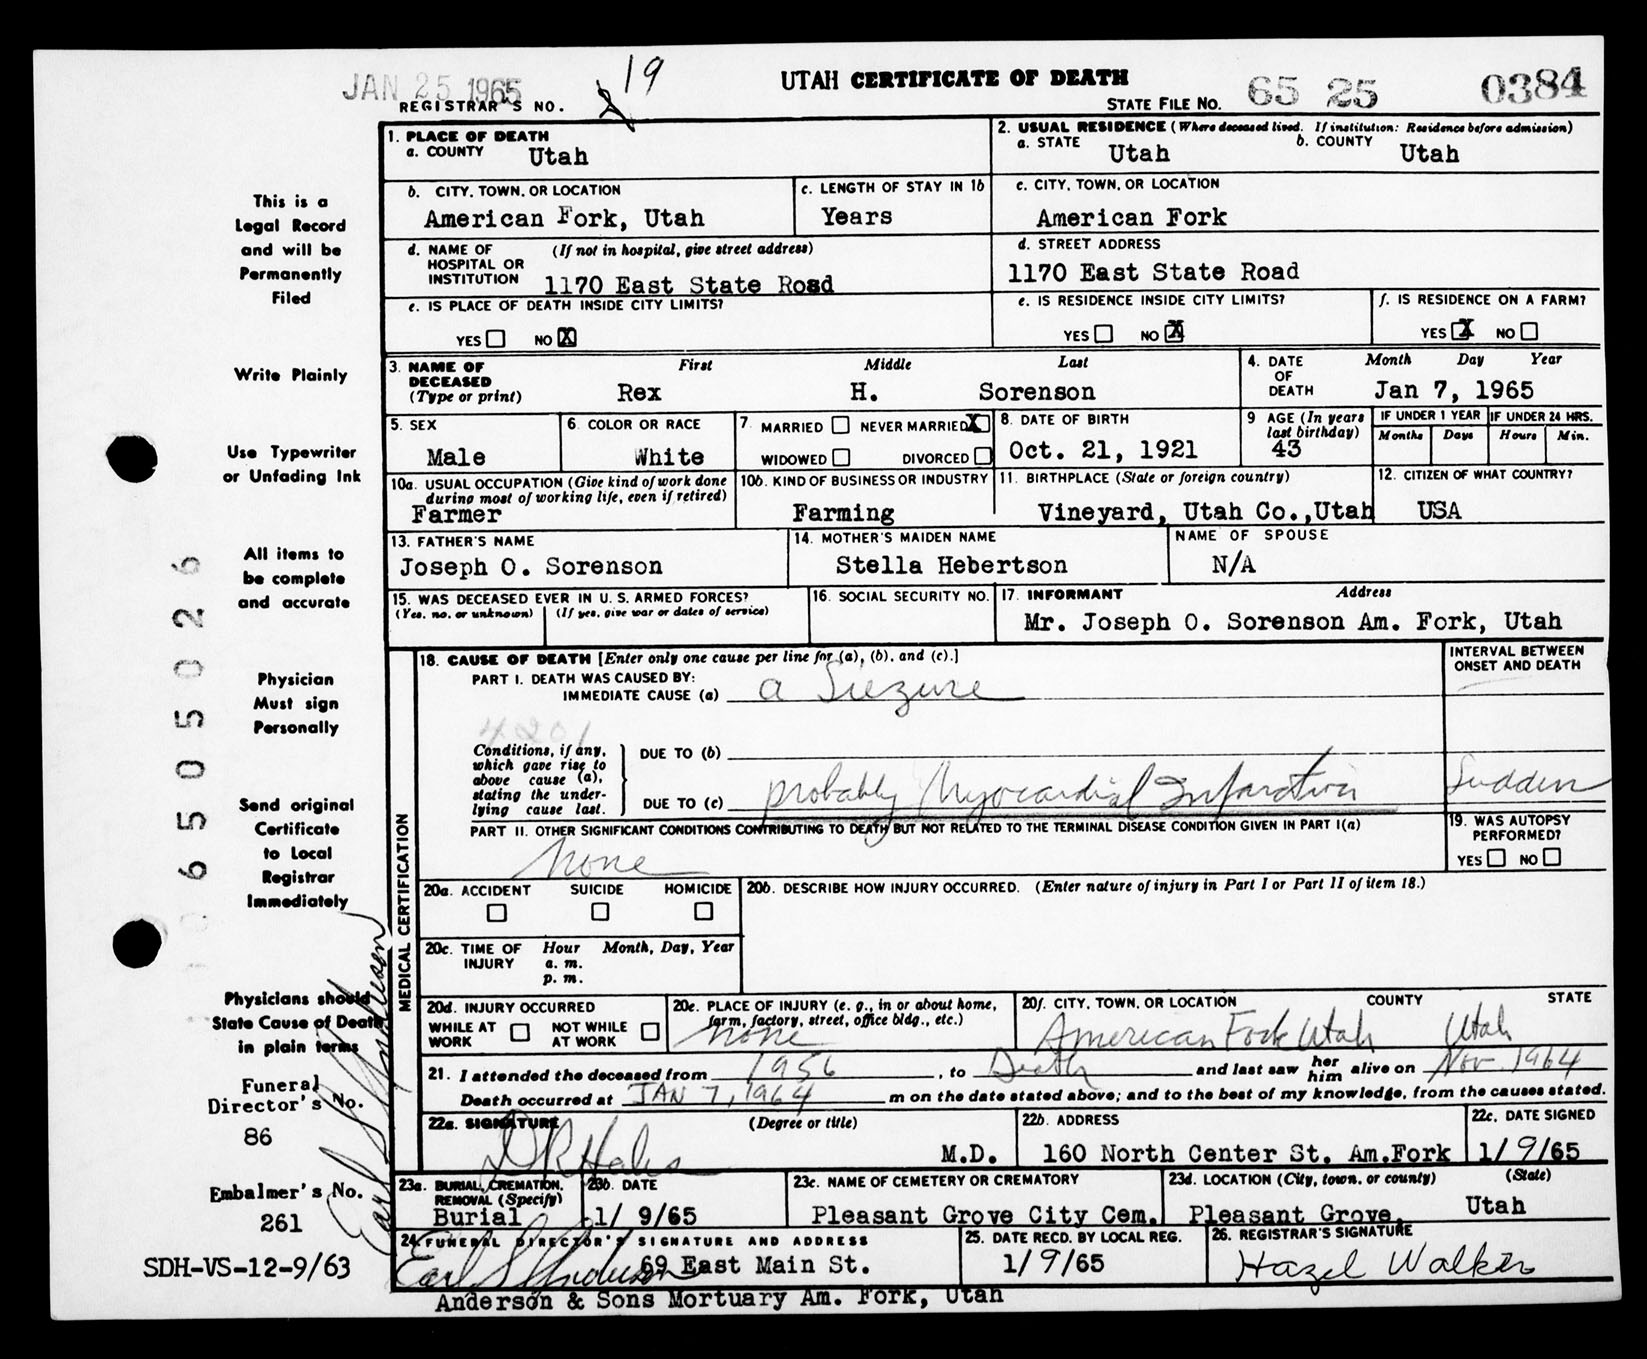 JAN 25 1965
REGISTRAR'S NO. 19
UTAH CERTIFICATE OF DEATH
STATE FILE NO. 65 25 0384
This is a
Legal Record
and will be
Permanently
Filed
Write Plainly
Use Typewriter
or Unfading Ink
All items to
be complete
and accurate
Physician
Must sign
Personally
Send original
Certificate
to Local
Registrar
Immediately
Physicians should
State Cause of Death
in plain terms
Funeral
Director's No.
86
Embalmer's No.
261
SDH-VS-12-9/63
6505026
Earl S Anderson
1. PLACE OF DEATH
a. COUNTY Utah
2. USUAL RESIDENCE (Where deceased lived. If institution: Residence before admission)
a. STATE Utah b. COUNTY Utah
b. CITY, TOWN, OR LOCATION
American Fork, Utah
c. LENGTH OF STAY IN 1b
Years
c. CITY, TOWN, OR LOCATION
American Fork
d. NAME OF HOSPITAL OR INSTITUTION (If not in hospital, give street address)
1170 East State Road
d. STREET ADDRESS
1170 East State Road
e. IS PLACE OF DEATH INSIDE CITY LIMITS?
YES NO X
e. IS RESIDENCE INSIDE CITY LIMITS?
YES NO X
f. IS RESIDENCE ON A FARM?
YES X NO
3. NAME OF DECEASED (Type or print) First Middle Last
Rex H. Sorenson
4. DATE OF DEATH Month Day Year
Jan 7, 1965
5. SEX
Male
6. COLOR OR RACE
White
7. MARRIED NEVER MARRIED X
WIDOWED DIVORCED
8. DATE OF BIRTH
Oct. 21, 1921
9 AGE (In years last birthday)
43
IF UNDER 1 YEAR IF UNDER 24 HRS.
Months Days Hours Min.
10a. USUAL OCCUPATION (Give kind of work done
during most of working life, even if retired)
Farmer
10b. KIND OF BUSINESS OR INDUSTRY
Farming
11. BIRTHPLACE (State or foreign country)
Vineyard, Utah Co.,Utah
12. CITIZEN OF WHAT COUNTRY?
USA
13. FATHER'S NAME
Joseph O. Sorenson
14. MOTHER'S MAIDEN NAME
Stella Hebertson
NAME OF SPOUSE
N/A
15. WAS DECEASED EVER IN U. S. ARMED FORCES?
(Yes, no, or unknown) (If yes, give war or dates of service)
16. SOCIAL SECURITY NO.
17. INFORMANT Address
Mr. Joseph O. Sorenson Am. Fork, Utah
MEDICAL CERTIFICATION
18. CAUSE OF DEATH [Enter only one cause per line for (a), (b), and (c).]
INTERVAL BETWEEN
ONSET AND DEATH
PART I. DEATH WAS CAUSED BY:
IMMEDIATE CAUSE (a) a Siezure
4201
Conditions, if any,
which gave rise to
above cause (a),
stating the under-
lying cause last.
DUE TO (b)
DUE TO (c) probably Myocardial Infarction Sudden
PART II. OTHER SIGNIFICANT CONDITIONS CONTRIBUTING TO DEATH BUT NOT RELATED TO THE TERMINAL DISEASE CONDITION GIVEN IN PART I(a)
none
19. WAS AUTOPSY
PERFORMED?
YES NO
20a. ACCIDENT SUICIDE HOMICIDE
20b. DESCRIBE HOW INJURY OCCURRED. (Enter nature of injury in Part I or Part II of item 18.)
20c. TIME OF INJURY Hour Month, Day, Year
a. m.
p. m.
20d. INJURY OCCURRED
WHILE AT WORK NOT WHILE AT WORK
20e. PLACE OF INJURY (e. g., in or about home,
farm, factory, street, office bldg., etc.)
none
20f. CITY, TOWN, OR LOCATION COUNTY STATE
American Fork Utah Utah
21. I attended the deceased from 1956, to Death and last saw her him alive on Nov. 1964
Death occurred at JAN 7, 1964 m on the date stated above; and to the best of my knowledge, from the causes stated.
22a. SIGNATURE (Degree or title)
D R Hales M.D.
22b. ADDRESS
160 North Center St. Am.Fork
22c. DATE SIGNED
1/9/65
23a. BURIAL, CREMATION,
REMOVAL (Specify)
Burial
23b. DATE
1/ 9/65
23c. NAME OF CEMETERY OR CREMATORY
Pleasant Grove City Cem.
23d. LOCATION (City, town, or county) (State)
Pleasant Grove, Utah
24. FUNERAL DIRECTOR'S SIGNATURE AND ADDRESS
Earl S Anderson 69 East Main St.
Anderson & Sons Mortuary Am. Fork, Utah
25. DATE RECD. BY LOCAL REG.
1/9/65
26. REGISTRAR'S SIGNATURE
Hazel Walker